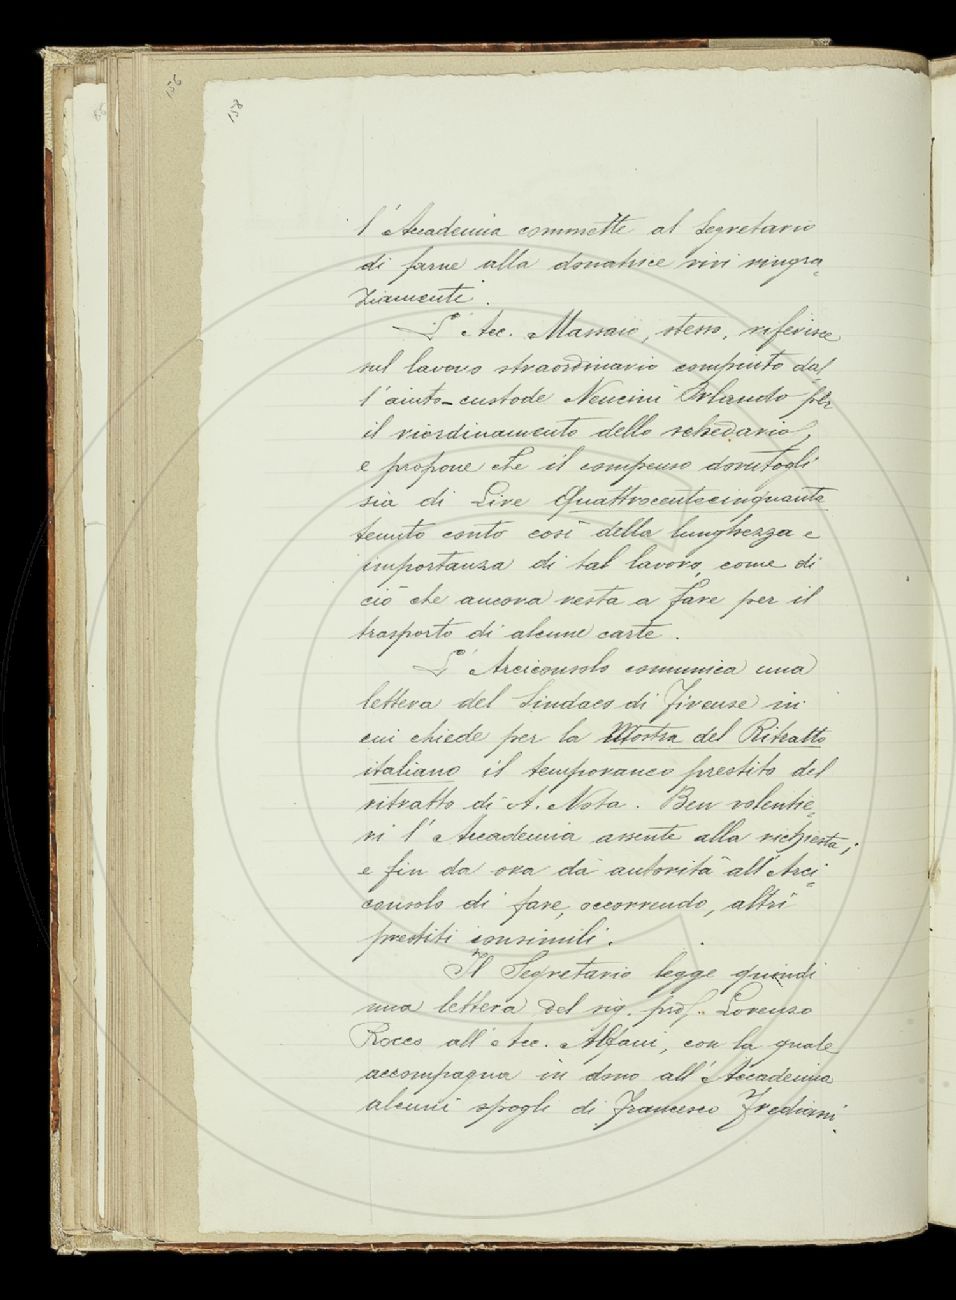 158
l'Accademia commette al Segretario
di farne alla donatrice vivi ringra=
ziamenti.
L'Acc. Massaio, stesso, riferisce
sul lavoro straordinario compiuto dal=
l'aiuto-custode Nencini Orlando per
il riordinamento dello schedario,
e propone che il compenso dovutogli
sia di Lire Quattrocentocinquanta
tenuto conto così della lunghezza e
importanza di tal lavoro, come di
ciò che ancora resta a fare per il
trasporto di alcune carte.
L'Arciconsolo comunica una
lettera del Sindaco di Firenze in
cui chiede per la Mostra del Ritratto
italiano il temporaneo prestito del
ritratto di A. Nota. Ben volentie=
ri l'Accademia assente alla richiesta;
e fin da ora dà autorità all'Arci=
consolo di fare, occorrendo, altri
prestiti consimili.
Il Segretario legge quindi
una lettera del sig. prof. Lorenzo
Rocco all'Acc. Alfani, con la quale
accompagna in dono all'Accademia
alcuni spogli di Francesco Frediani.